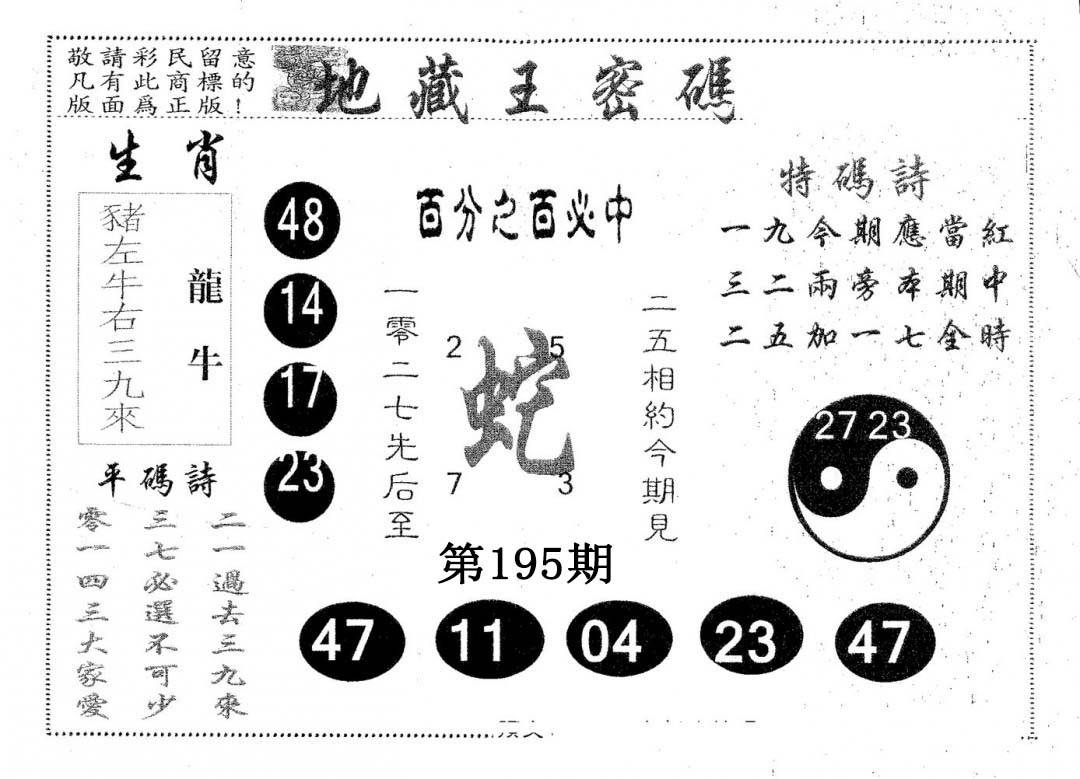 敬請彩民留意
凡有此商標的
版面爲正版！
地藏王密碼
生肖
豬左牛右三九來
龍牛
48
14
17
23
百分之百必中
一零二七先后至
2 5
蛇
7 3
二五相約今期見
特碼詩
一九今期應當紅
三二兩旁本期中
二五加一七全時
27 23
平碼詩
二一過去三九來
三七必選不可少
零一四三大家愛
第195期
47 11 04 23 47